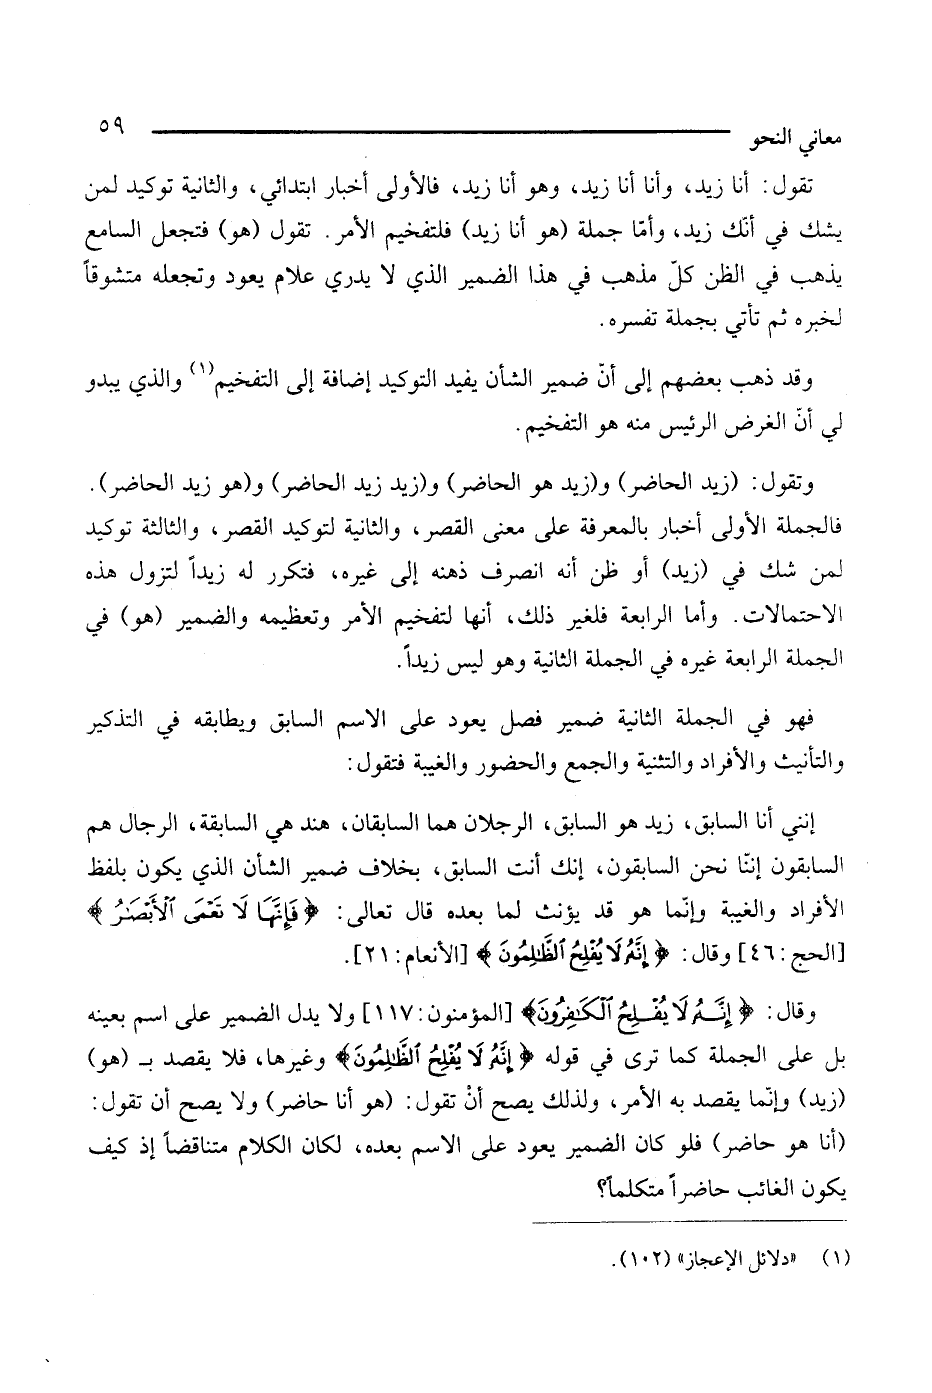 معاني النحو ٥٩
تقول: أنا زيد، وأنا أنا زيد، وهو أنا زيد، فالأولى أخبار ابتدائي، والثانية توكيد لمن
يشك في أنّك زيد، وأمّا جملة (هو أنا زيد) فلتفخيم الأمر. تقول (هو) فتجعل السامع
يذهب في الظن كلّ مذهب في هذا الضمير الذي لا يدري علام يعود وتجعله متشوقاً
لخبره ثم تأتي بجملة تفسره.
وقد ذهب بعضهم إلى أنّ ضمير الشأن يفيد التوكيد إضافة إلى التفخيم(١) والذي يبدو
لي أنّ الغرض الرئيس منه هو التفخيم.
وتقول: (زيد الحاضر) و(زيد هو الحاضر) و(زيد زيد الحاضر) و(هو زيد الحاضر).
فالجملة الأولى أخبار بالمعرفة على معنى القصر، والثانية لتوكيد القصر، والثالثة توكيد
لمن شك في (زيد) أو ظن أنه انصرف ذهنه إلى غيره، فتكرر له زيداً لتزول هذه
الاحتمالات. وأما الرابعة فلغير ذلك، أنها لتفخيم الأمر وتعظيمه والضمير (هو) في
الجملة الرابعة غيره في الجملة الثانية وهو ليس زيداً.
فهو في الجملة الثانية ضمير فصل يعود على الاسم السابق ويطابقه في التذكير
والتأنيث والأفراد والتثنية والجمع والحضور والغيبة فتقول:
إنني أنا السابق، زيد هو السابق، الرجلان هما السابقان، هند هي السابقة، الرجال هم
السابقون إننّا نحن السابقون، إنك أنت السابق، بخلاف ضمير الشأن الذي يكون بلفظ
الأفراد والغيبة وإنّما هو قد يؤنث لما بعده قال تعالى: ﴿فَإِنَّهَا لَا تَعْمَى ٱلْأَبْصَٰرُ﴾
[الحج: ٤٦] وقال: ﴿إِنَّهُۥ لَا يُفْلِحُ ٱلظَّٰلِمُونَ﴾ [الأنعام: ٢١].
وقال: ﴿إِنَّهُۥ لَا يُفْلِحُ ٱلْكَٰفِرُونَ﴾ [المؤمنون: ١١٧] ولا يدل الضمير على اسم بعينه
بل على الجملة كما ترى في قوله ﴿إِنَّهُۥ لَا يُفْلِحُ ٱلظَّٰلِمُونَ﴾ وغيرها، فلا يقصد بـ (هو)
(زيد) وإنّما يقصد به الأمر، ولذلك يصح أنْ تقول: (هو أنا حاضر) ولا يصح أن تقول:
(أنا هو حاضر) فلو كان الضمير يعود على الاسم بعده، لكان الكلام متناقضاً إذ كيف
يكون الغائب حاضراً متكلماً؟
(١) «دلائل الإعجاز» (١٠٢).